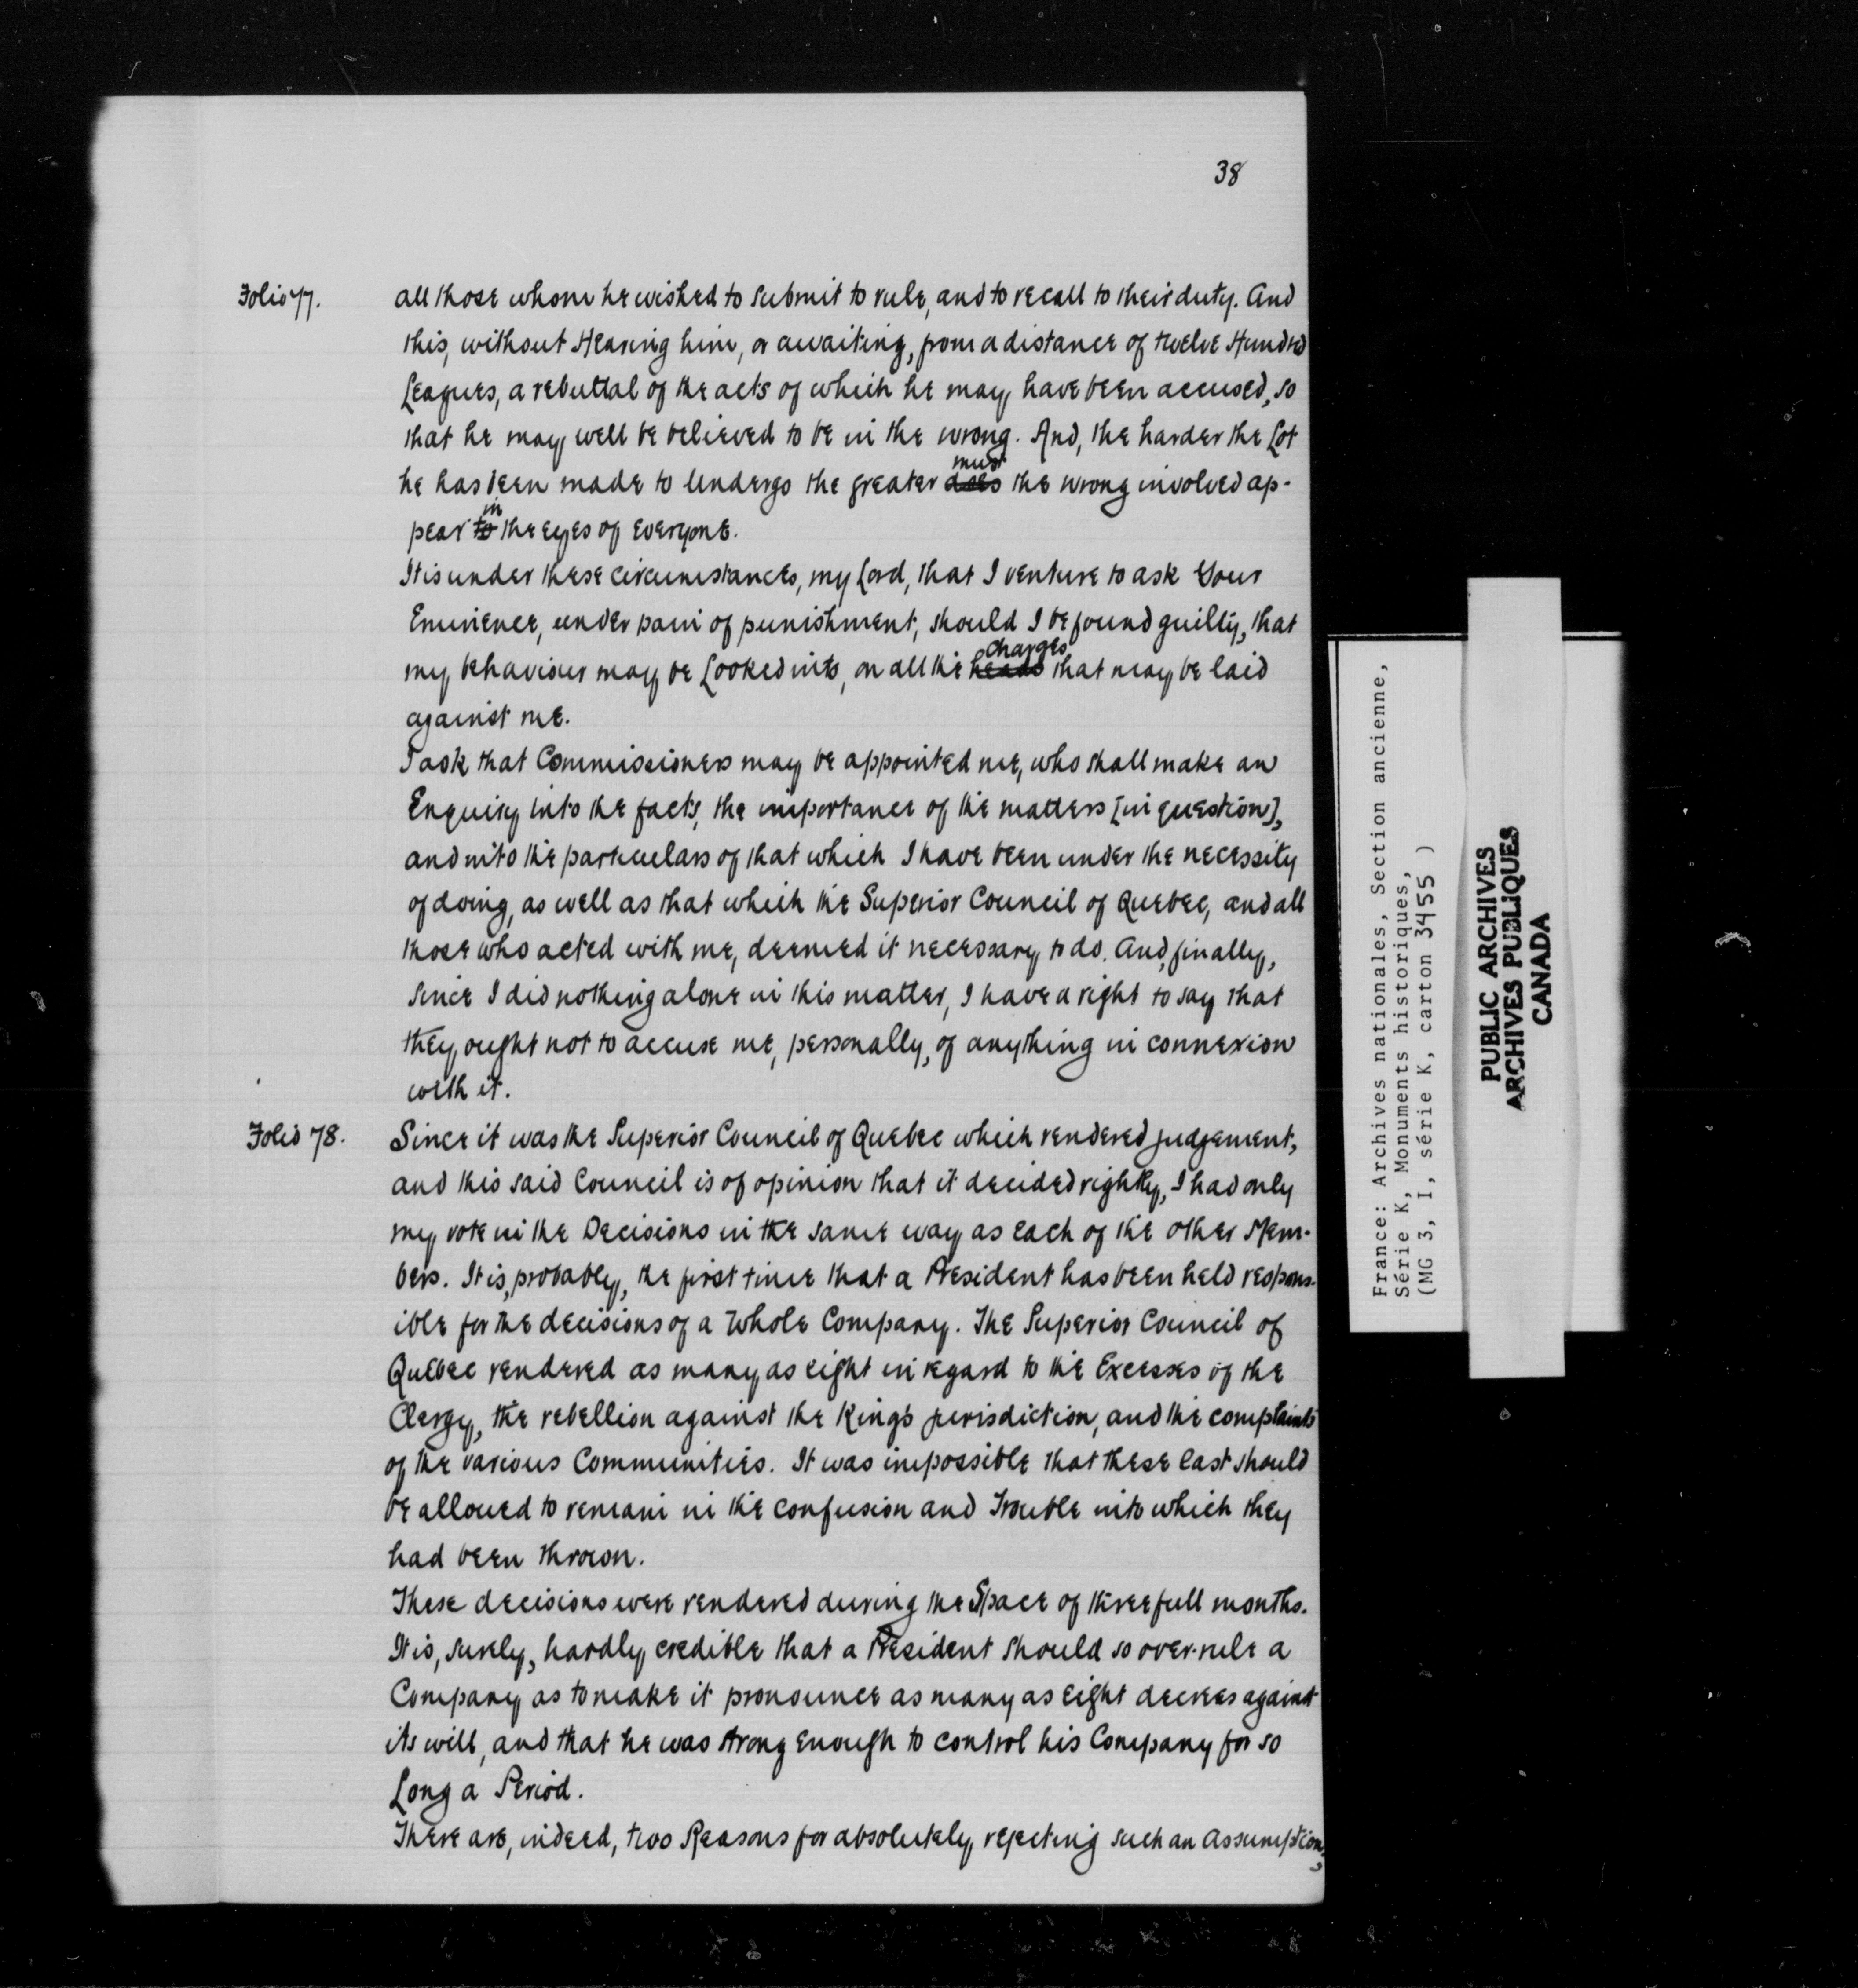 38
Folio 77.
all those whom he wished to submit to rule, and to recall to their duty. And
this, without Hearing him, or awaiting, from a distance of twelve Hundred
Leagues, a rebuttal of the acts of which he may have been accused, so
that he may well be believed to be in the wrong. And, the harder the Lot
must
he has been made to Undergo the greater does the wrong involved ap-
in
pear to the eyes of Everyone.
It is under these circumstances, my Lord, that I venture to ask Your
Eminence, under pain of punishment, should I be found guilty, that
charges
my behaviour may be Looked into, on all the heads that may be laid
against me.
I ask that Commissioners may be appointed me, who shall make an
Enquiry into the facts, the importance of the matters [in question],
and into the particulars of that which I have been under the necessity
of doing, as well as that which the Superior Council of Quebec, and all
those who acted with me, deemed it necessary to do. And, finally,
since I did nothing alone in this matter, I have a right to say that
they ought not to accuse me, personally, of anything in connexion
with it.
Folio 78.
Since it was the Superior Council of Quebec which rendered judgement,
and this said Council is of opinion that it decided rightly, I had only
my vote in the Decisions in the same way as each of the other Mem-
bers. It is, probably, the first time that a President has been held respons-
ible for the decisions of a Whole Company. The Superior Council of
Quebec rendered as many as eight in regard to the Excesses of the
Clergy, the rebellion against the King's jurisdiction, and the complaints
of the various Communities. It was impossible that these last should
be allowed to remain in the confusion and Trouble into which they
had been thrown.
These decisions were rendered during the Space of three full months.
It is, surely, hardly credible that a President should so over-rule a
Company as to make it pronounce as many as eight decrees against
its will, and that he was strong Enough to control his Company for so
Long a Period.
There are, indeed, two Reasons for absolutely rejecting such an assumption,
France: Archives nationales, Section ancienne,
Série K, Monuments historiques,
(MG 3, I, série K, carton 3455 )
PUBLIC ARCHIVES
ARCHIVES PUBLIQUES
CANADA